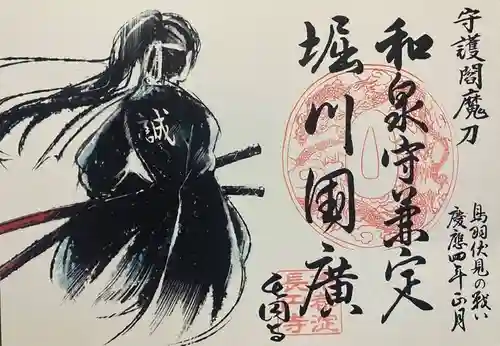 守護閻魔刀
和泉守兼定
堀川國廣
鳥羽伏見の戦い
慶應四年正月
誠
長円寺